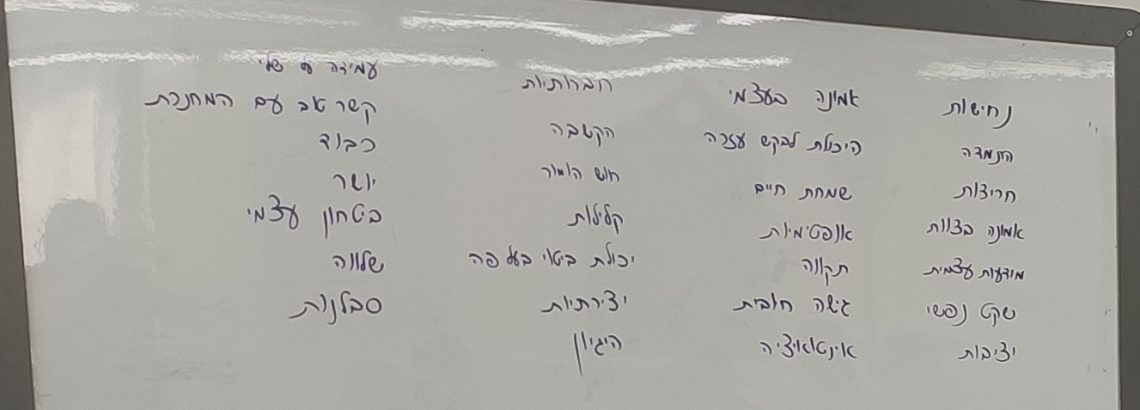 נחישות
התמדה
חריצות
אמונה בצוות
מודעות עצמית
שקט נפשי
יציבות
אמונה בעצמי
היכולת לבקש עזרה
שמחת חיים
אופטימיות
תקווה
גישה חיובית
אינטואיציה
חברותיות
הקשבה
חוש הומור
קלילות
יכולת ביטוי בעל פה
יצירתיות
היגיון
עמידה
קשר טוב עם המחנכת
כבוד
יושר
ביטחון עצמי
שלווה
סבלנות